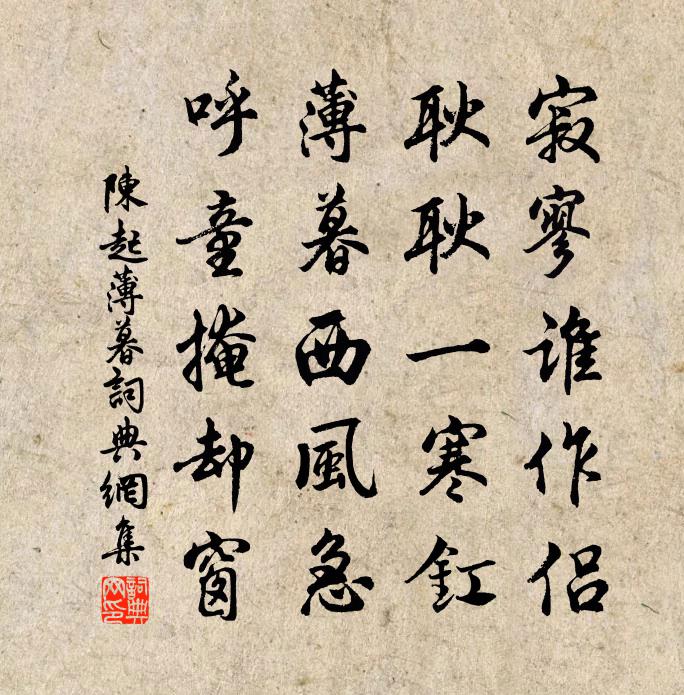 寂寥谁作侣
耿耿一寒釭
薄暮西風急
呼童掩却窗
陳起薄暮詞典網集
詞典網印